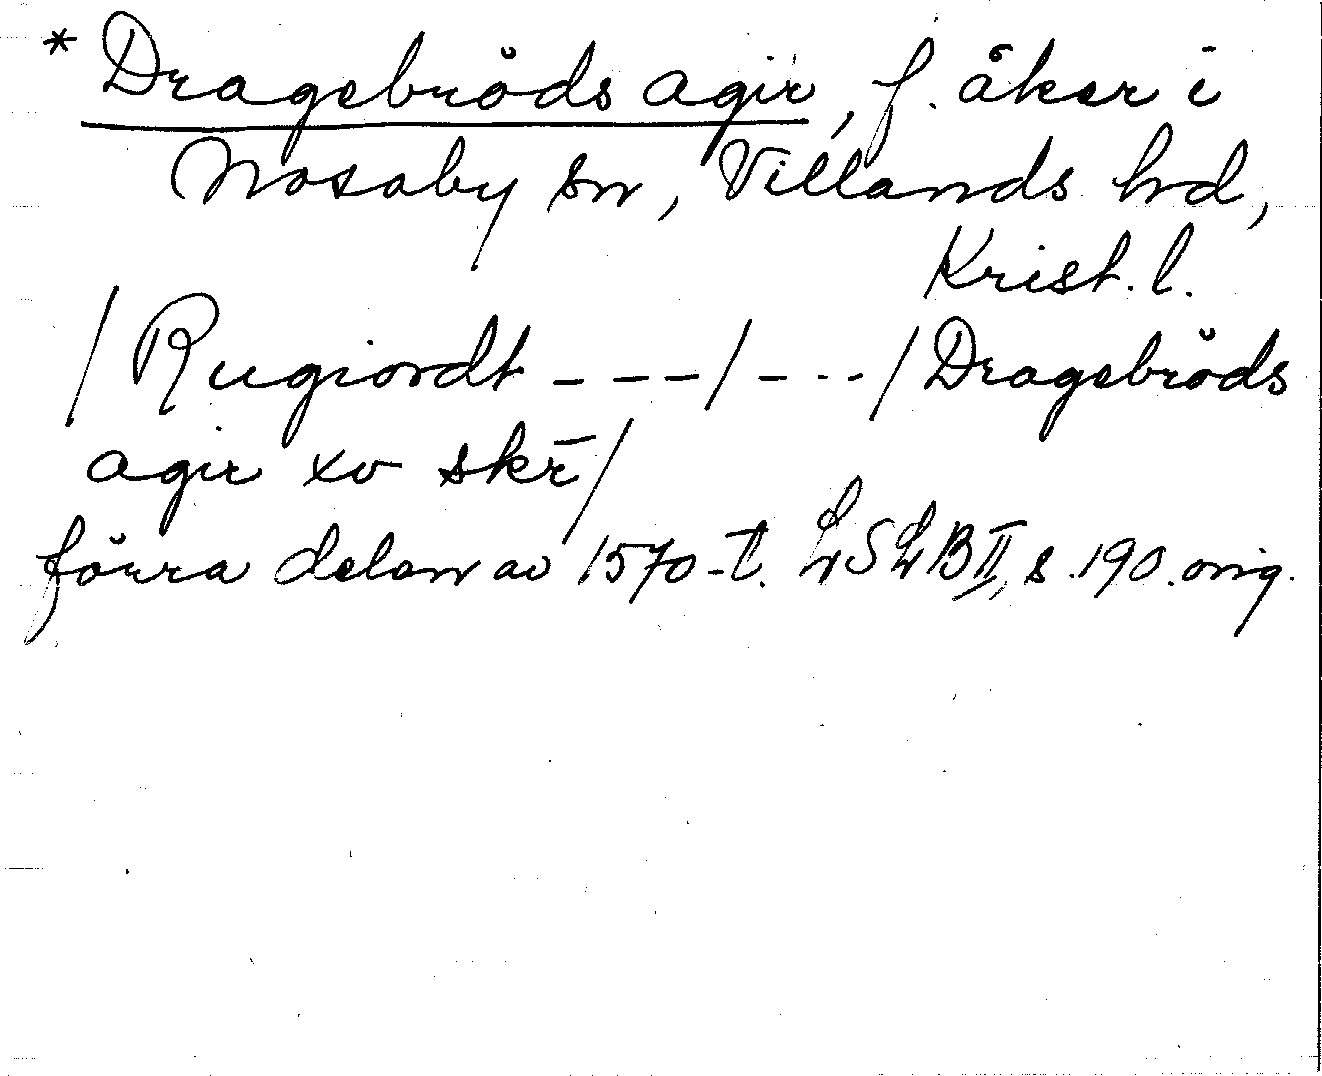 * Dragebröds agir, f. åker i
Nosaby sn, Villands hd,
Krist. l.
/ Rugiordt - - - / - - - / Dragebröds
agir xv skr̄ /
förra delen av 1570-t. LSLB II, s. 190. orig.